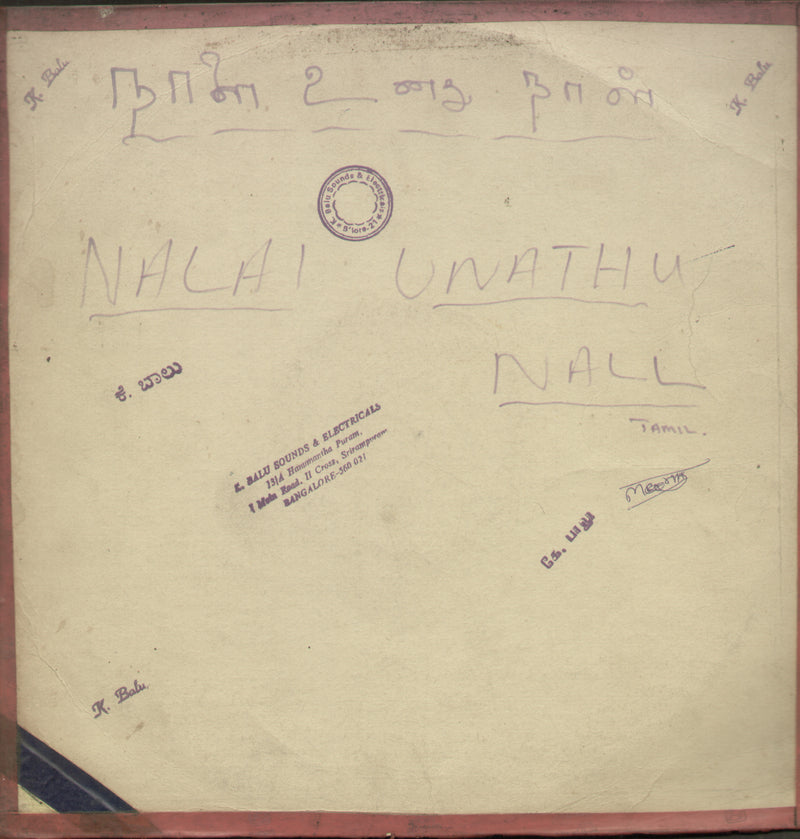 K. Balu
நாளை உனது நாள்
K. Balu
K. Balu Sounds & Electricals
★ B'lore-21 ★
NALAI UNATHU
NALL
TAMIL.
ಕೆ. ಬಾಲು
K. BALU SOUNDS & ELECTRICALS
15/A Hanumantha Puram,
I Main Road, II Cross, Srirampuram
BANGALORE-560 021
கே. பாலு
K. Balu